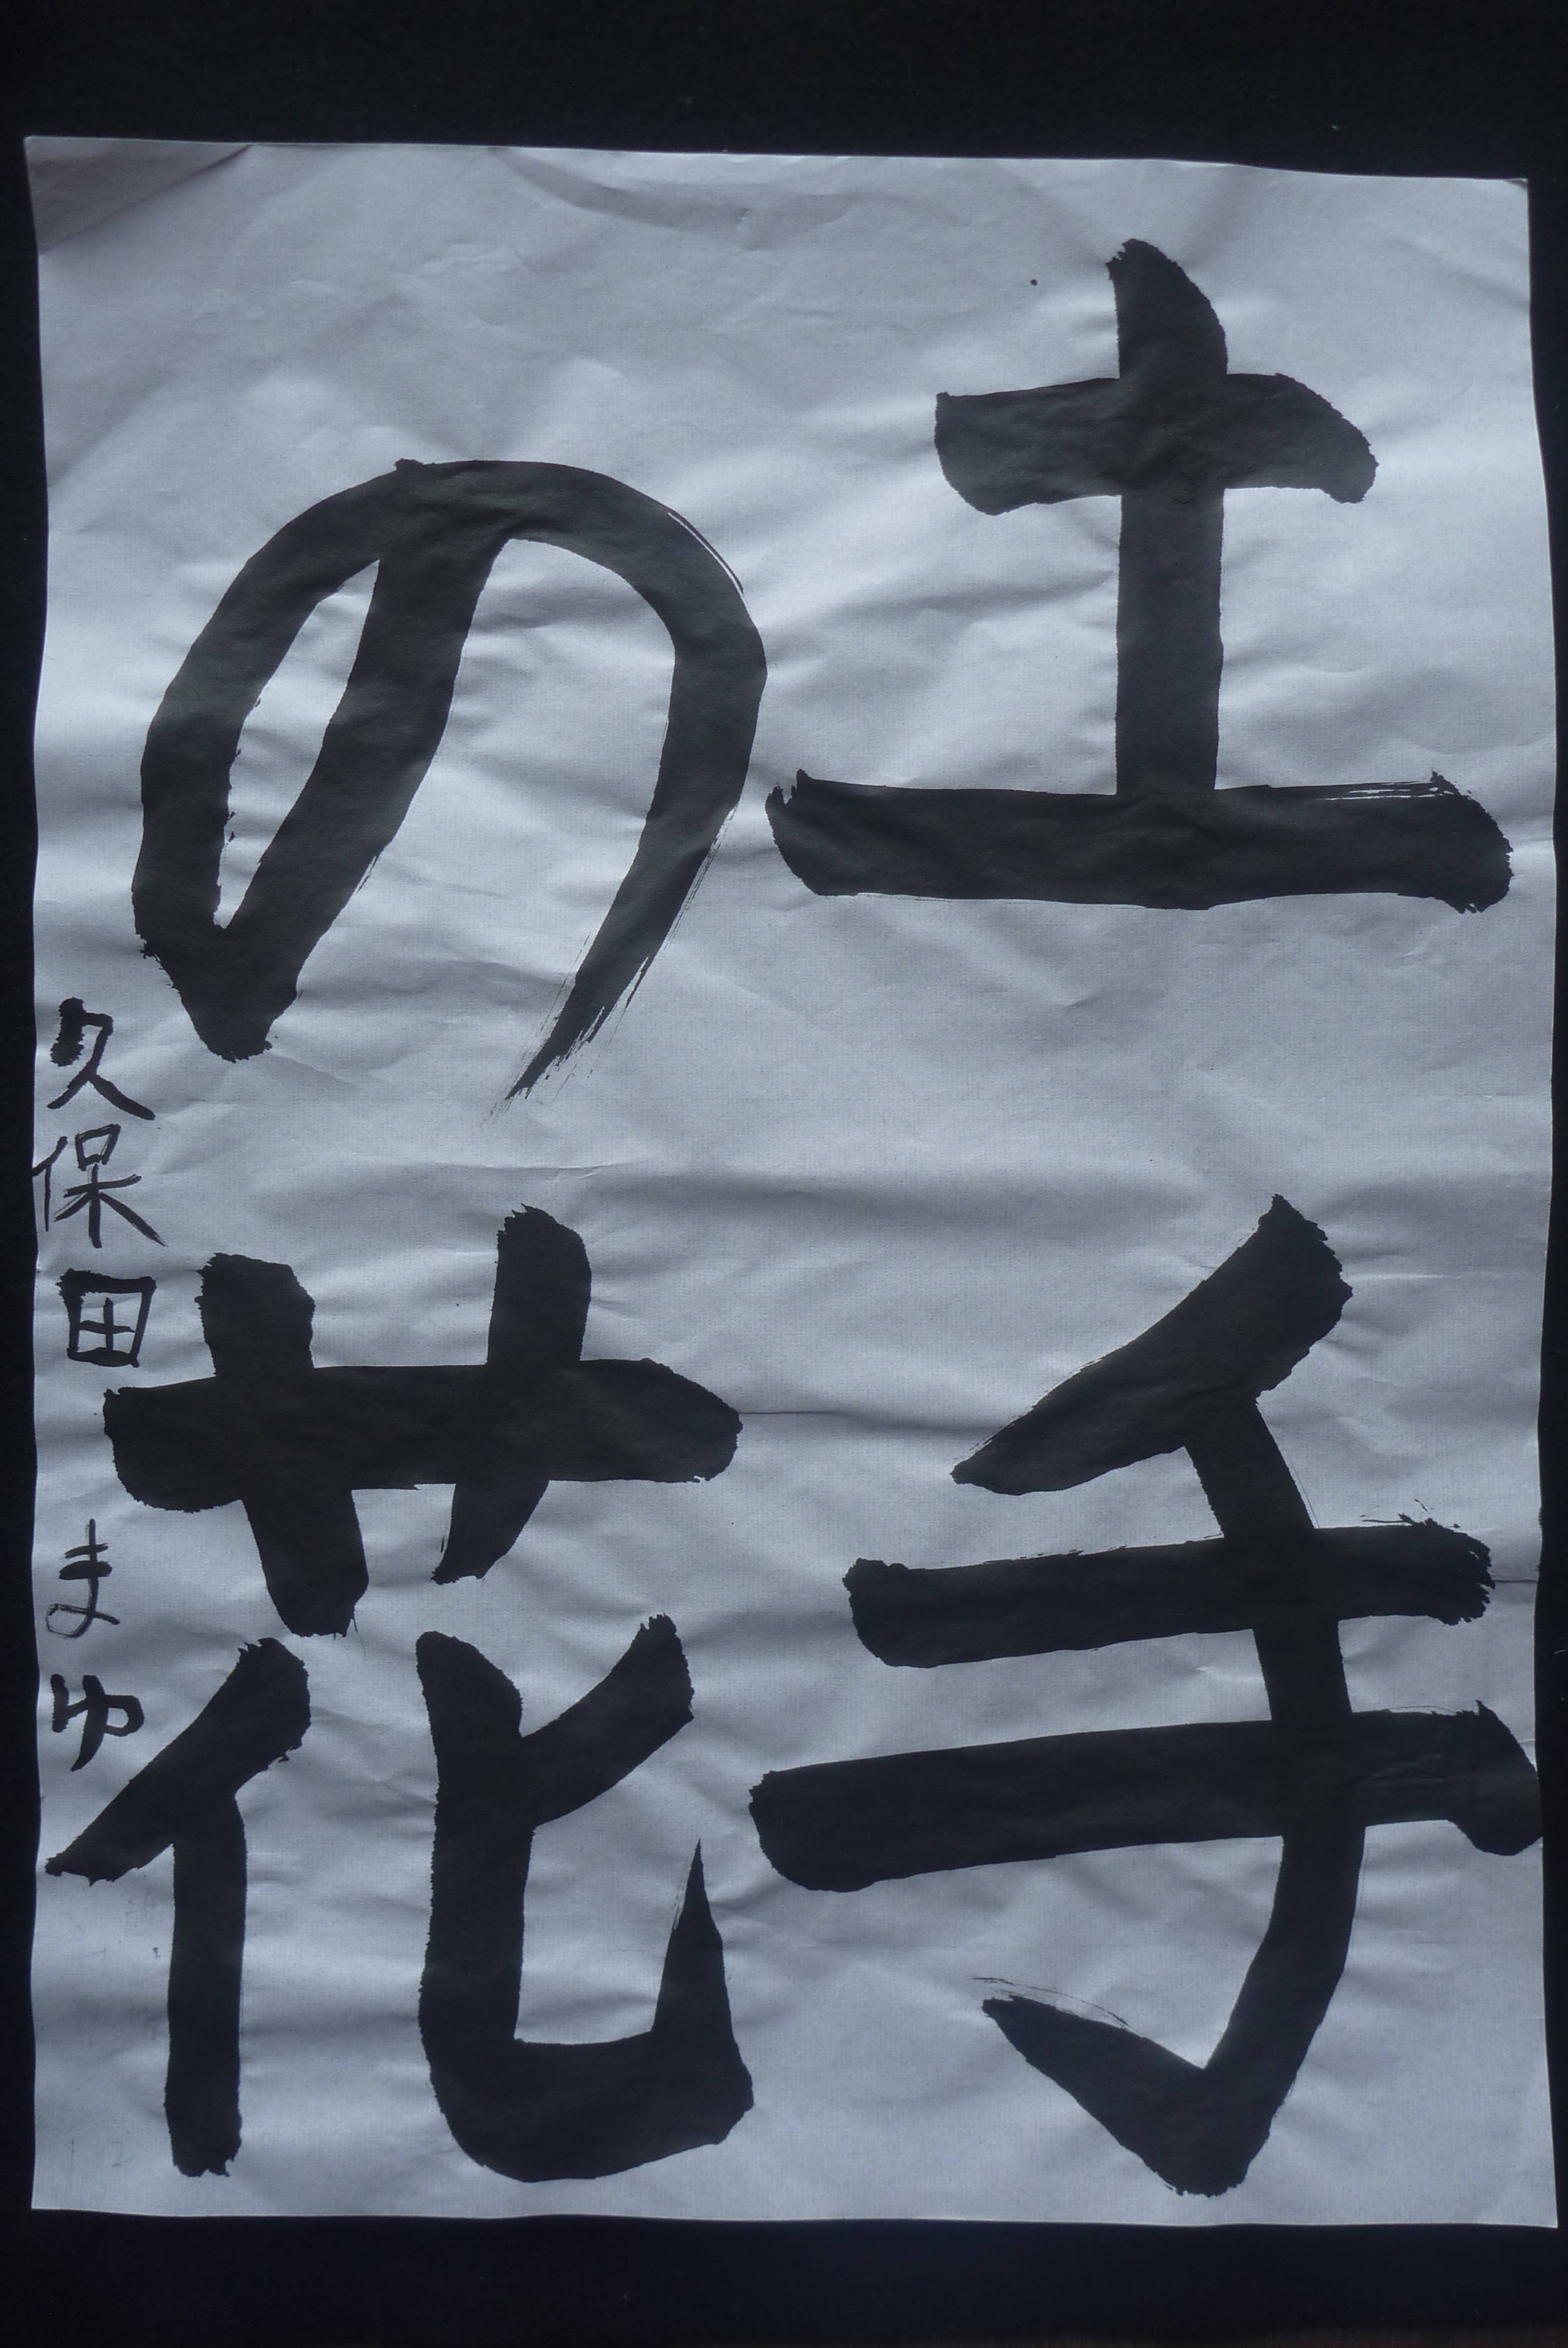 土手
の花
久保田まゆ